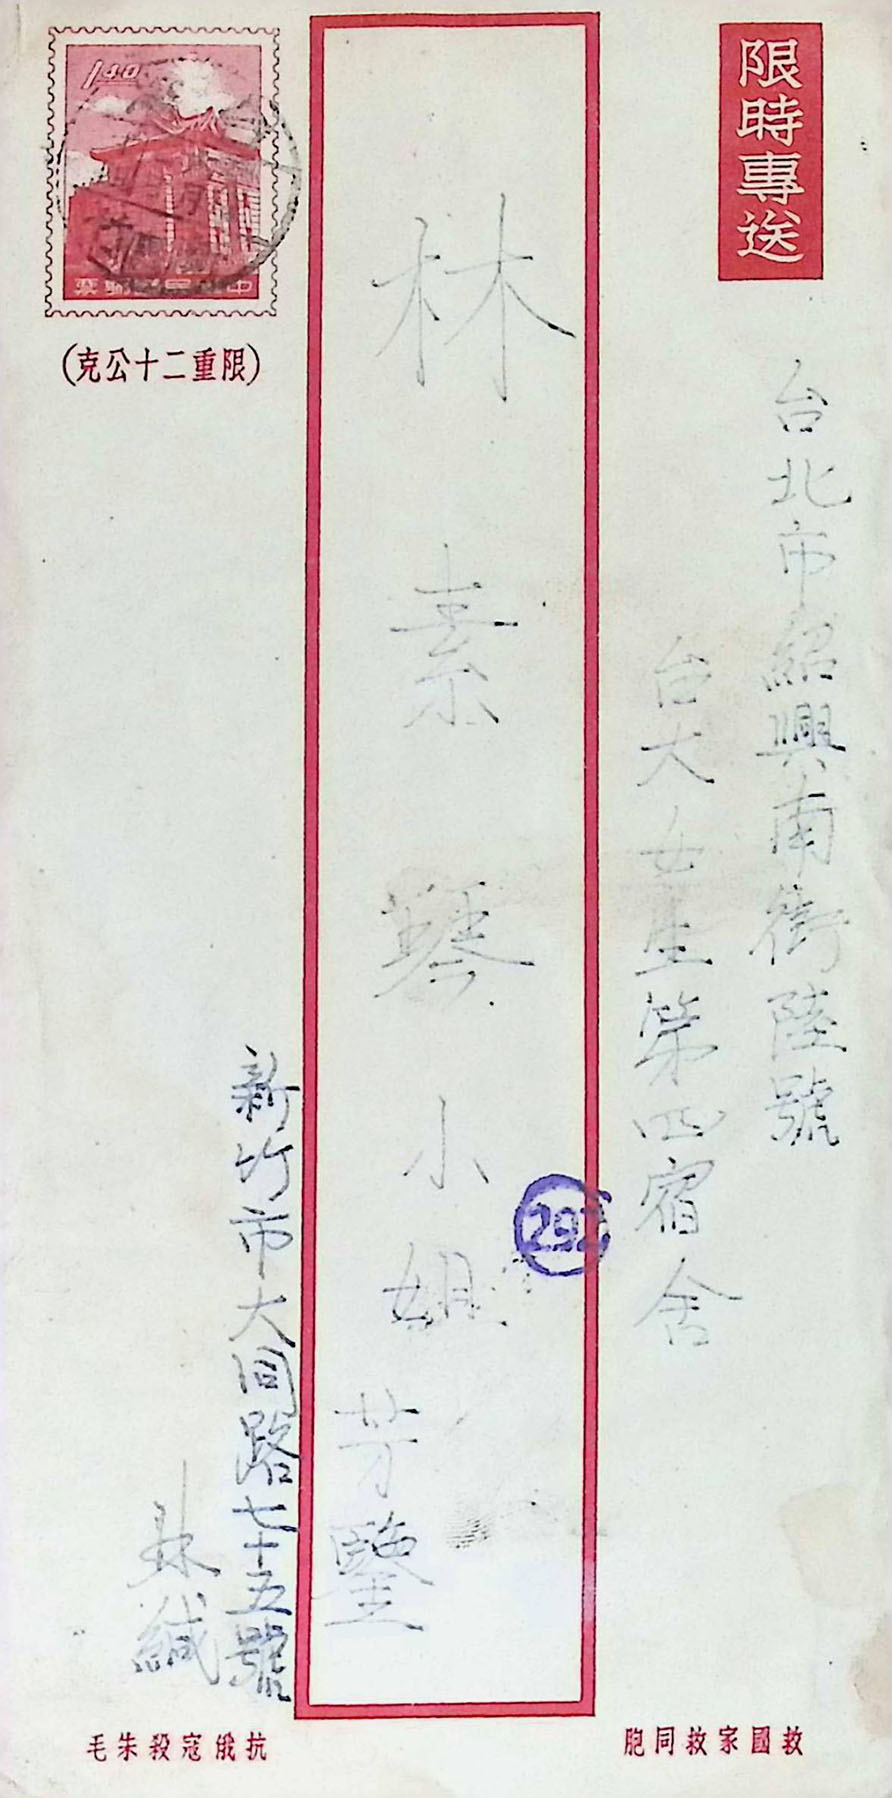 限時專送
台北市紹興南街陸號
台大女生第四宿舍
林素琴小姐
芳鑒
292
1.40
中華民國郵票
(限重二十公克)
新竹市大同路七十五號
林緘
救國家救同胞
抗俄寇殺朱毛